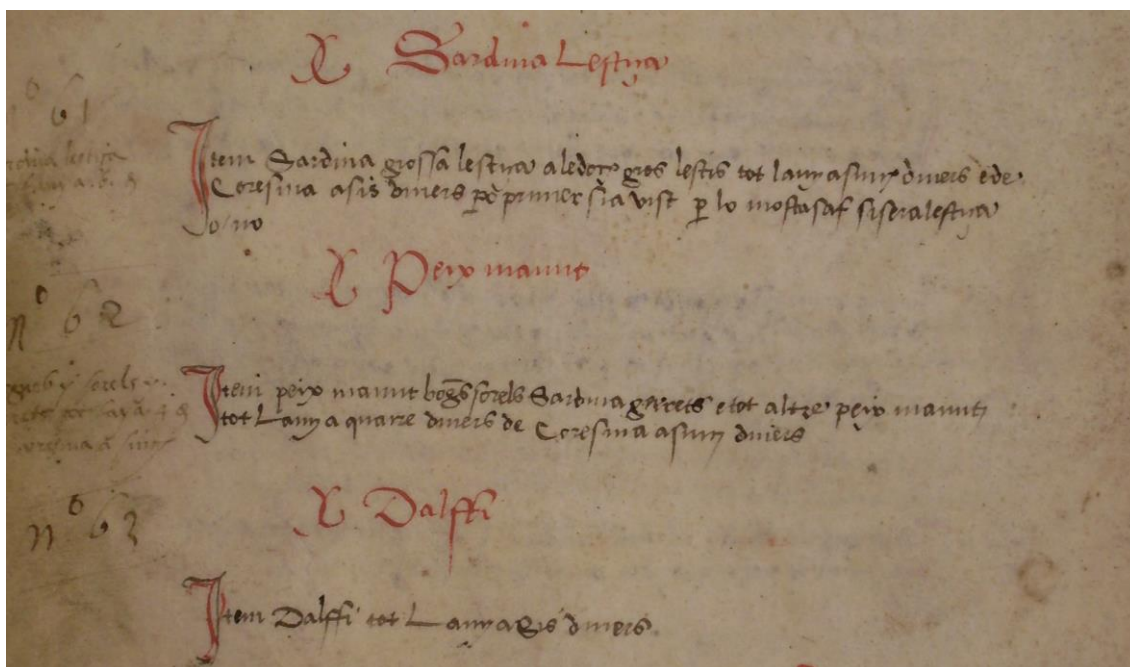 Sardina Lestiva
61
Item Sardina grossa lestiva aledoz gros lestis tot lany a sinq diners e de
Coresma a sis diners pero primer sia vist per lo mostasaf si sera lestiva
o / no
Peix manut
nº 62
Item peix manut bogues sorels Sardina gerrets e tot altre peix manut
tot Lany a quatre diners de Coresma a sinq diners
Dalffi
nº 63
Item Dalffi tot Lany a sis diners